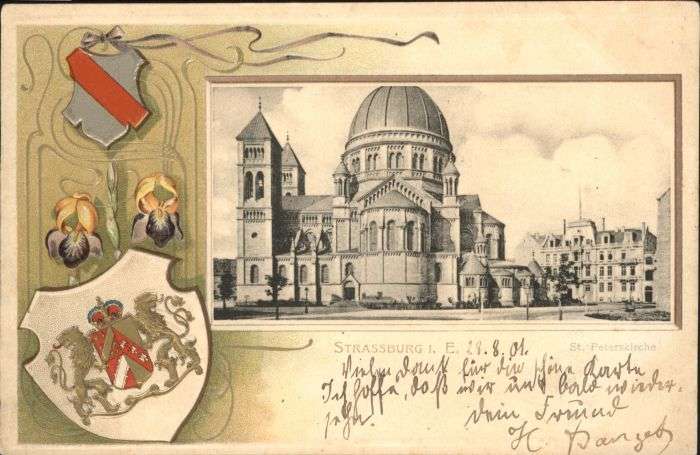 STRASSBURG I. E. 28.8.01. St. Peterskirche
Vielen Dank für die schöne Karte
Ich hoffe, daß wir uns bald wieder-
sehn. Dein Freund
H.